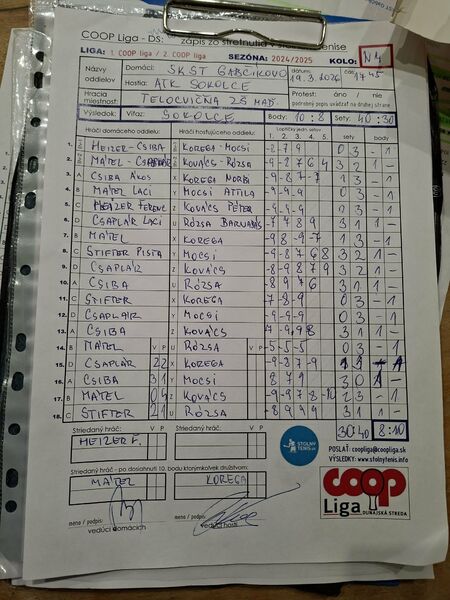 COOP Liga - DS: zápis zo stretnutia v stolnom tenise
LIGA: 1. COOP liga / 2. COOP liga SEZÓNA: 2024/2025 KOLO:
Názvy oddielov Domáci: ŠKST GABČÍKOVO dátum: 19.3.2026 čas: 17 45
Hostia: ATK SOKOLCE Protest: áno / nie
Hracia miestnosť: TELOCVIČŇA ZŠ MAĎ. podrobný popis uvádzať na druhej strane
Výsledok: Víťaz: SOKOLCE Body: 10 : 8 Sety: 40 : 30
Hráči domáceho oddielu: Hráči hosťujúceho oddielu: Loptičky jedn. setov sety body
1. 2. 3. 4. 5.
1. HEIZER - CSIBA KOREGA - MOCSI -2 -7 9 0 3 - 1
2. MATEL - CSAPLÁR KOVÁCS - RÓZSA -9 -8 7 6 4 3 2 1 -
3. A CSIBA ÁKOS X KOREGA NORBI -9 -8 7 -7 1 3 - 1
4. B MATEL LACI Y MOCSI ATTILA -9 -9 -9 0 3 - 1
5. C HEIZER FERENC Z KOVÁCS PÉTER -9 -9 -9 0 3 - 1
6. D CSAPLÁR LACI U RÓZSA BARNABÁS -7 7 8 9 3 1 1 -
7. B MATEL X KOREGA -9 8 -9 -7 1 3 - 1
8. C STIFTER PISTA Y MOCSI -9 8 7 6 8 3 2 1 -
9. D CSAPLÁR Z KOVÁCS -9 -8 8 7 9 3 2 1 -
10. A CSIBA U RÓZSA -8 9 7 6 3 1 1 -
11. C STIFTER X KOREGA -7 -8 -9 0 3 - 1
12. D CSAPLÁR Y MOCSI -9 -9 -9 0 3 - 1
13. A CSIBA Z KOVÁCS 7 -9 9 8 3 1 1 -
14. B MATEL V P U RÓZSA V P -5 -5 -5 0 3 - 1
15. D CSAPLÁR 2 2 X KOREGA -9 -8 7 -9 1
16. A CSIBA 3 1 Y MOCSI 8 7 9 3 0 1 -
17. B MATEL 0 4 Z KOVÁCS -9 -9 7 8 -10 2 3 - 1
18. C STIFTER 2 1 U RÓZSA -8 9 9 9 3 1 1 -
Striedaný hráč: Striedaný hráč: 30:40 8:10
HEIZER F. V P V P
STOLNÝ TENIS.sk
POSLAŤ: coopliga@coopliga.sk
VÝSLEDKY: www.stolnytenis.info
Striedaný hráč - po dosiahnutí 10. bodu ktorýmkoľvek družstvom:
MATEL KOREGA
meno / podpis: meno / podpis:
vedúci domácich vedúci hostí
COOP
Liga DUNAJSKÁ STREDA